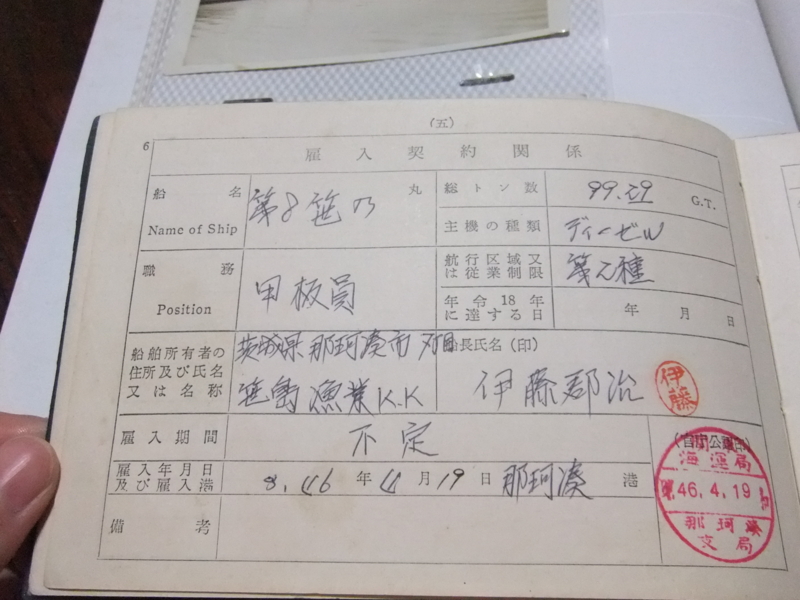 (五)
6
雇入契約関係
船名 第8笹乃 丸 総トン数 99.29 G.T.
Name of Ship
主機の種類 ディーゼル
職務 甲板員 航行区域又は従業制限 第乙種
Position
年令18年に達する日 年 月 日
船舶所有者の住所及び氏名又は名称 茨城県那珂湊市
笹島漁業K.K
船長氏名(印) 伊藤郡治 伊藤
雇入期間 不定
雇入年月日及び雇入港 S.46年4月19日 那珂湊 港
海運局
46.4.19
那珂湊
支局
備考